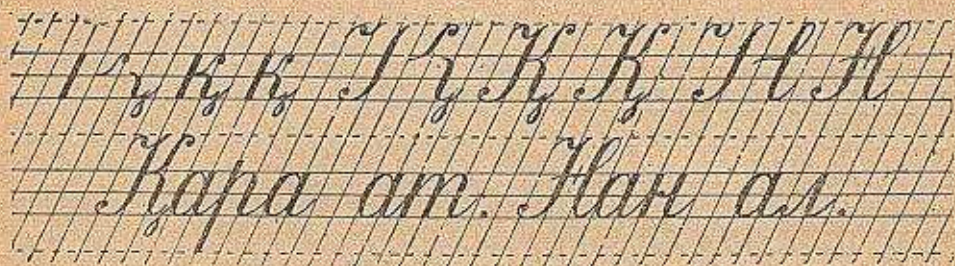 қ қ Қ Қ Н
Қара ат. Нан ал.